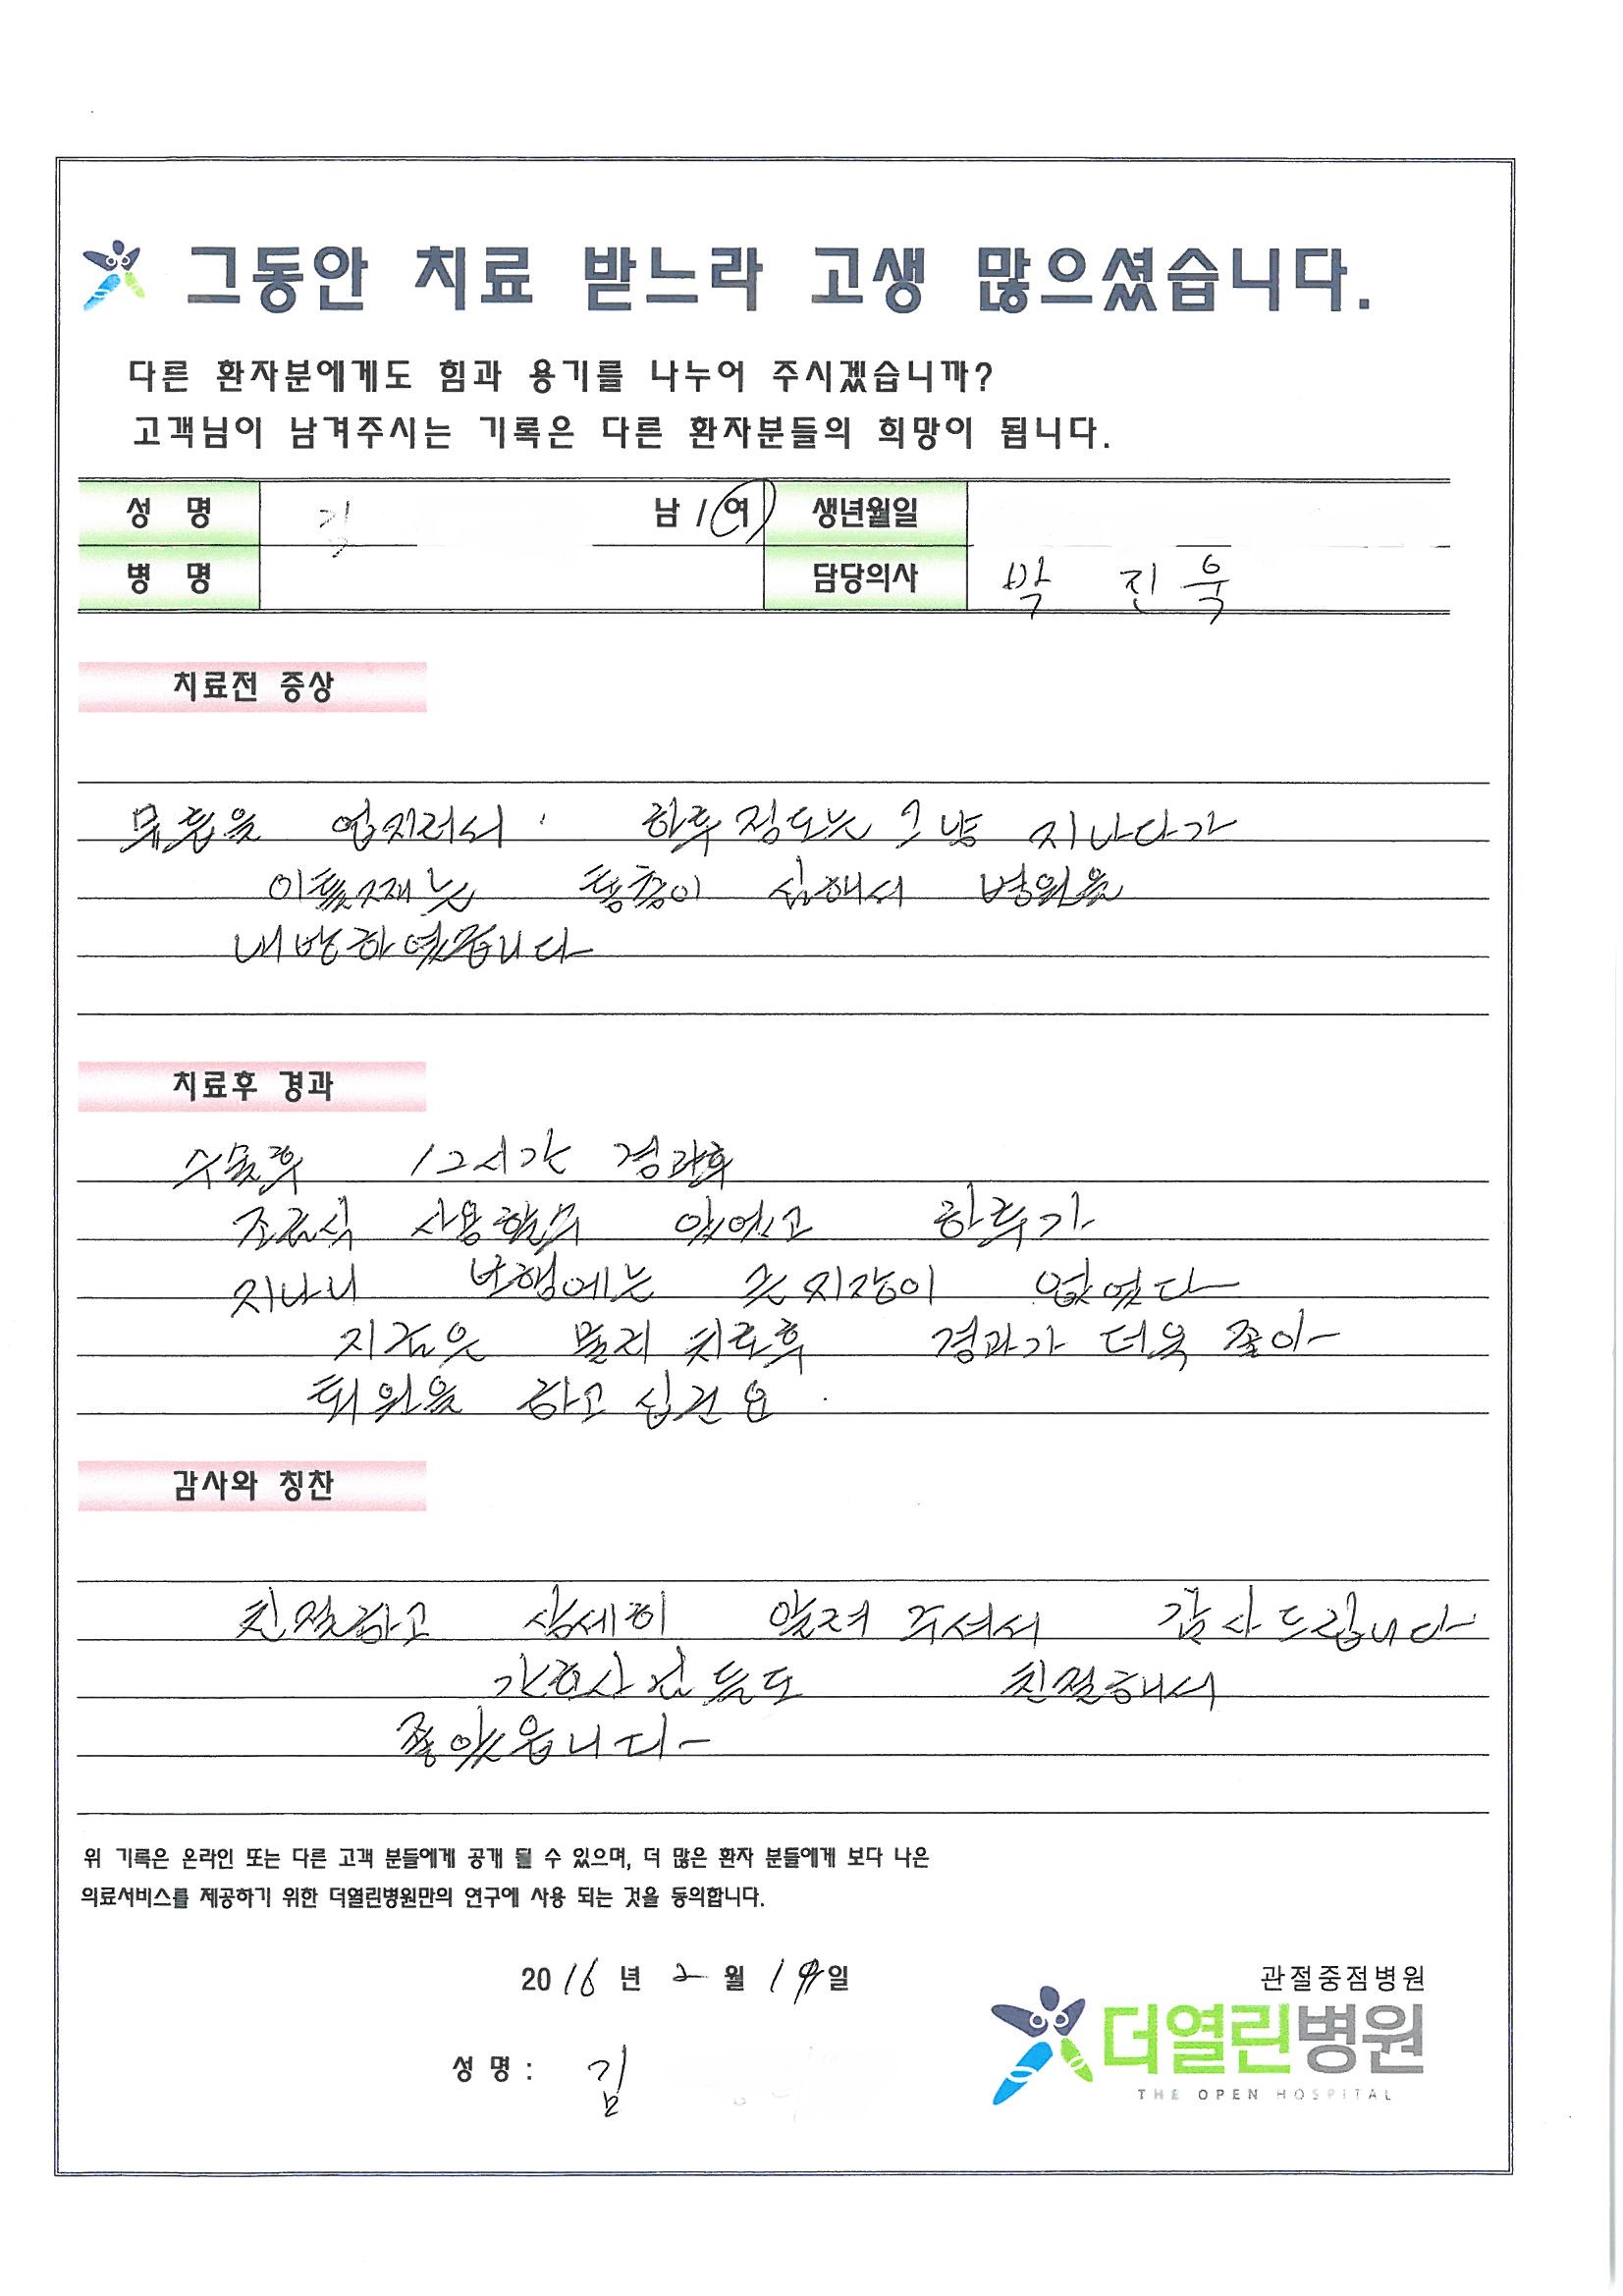 그동안 치료 받느라 고생 많으셨습니다.
다른 환자분에게도 힘과 용기를 나누어 주시겠습니까?
고객님이 남겨주시는 기록은 다른 환자분들의 희망이 됩니다.
성 명 김 남 / 여 생년월일
병 명 담당의사 박 진욱
치료전 증상
무릎을 업지러서 하루 정도는 그냥 지나다가
이틀째는 통증이 심해서 병원을
내방하였습니다
치료후 경과
수술후 12시간 경과후
조금식 사용할수 있었고 하루가
지나니 보행에는 큰 지장이 없었다
지금은 물리 치료후 경과가 더욱 좋아
퇴원을 하고 십건요
감사와 칭찬
친절하고 상세히 알려 주셔서 감사드립니다
간호사님들도 친절해서
좋았읍니다
위 기록은 온라인 또는 다른 고객 분들에게 공개 될 수 있으며, 더 많은 환자 분들에게 보다 나은
의료서비스를 제공하기 위한 더열린병원만의 연구에 사용 되는 것을 동의합니다.
2016 년 2 월 19 일
관절중점병원
더열린병원
THE OPEN HOSPITAL
성 명 : 김